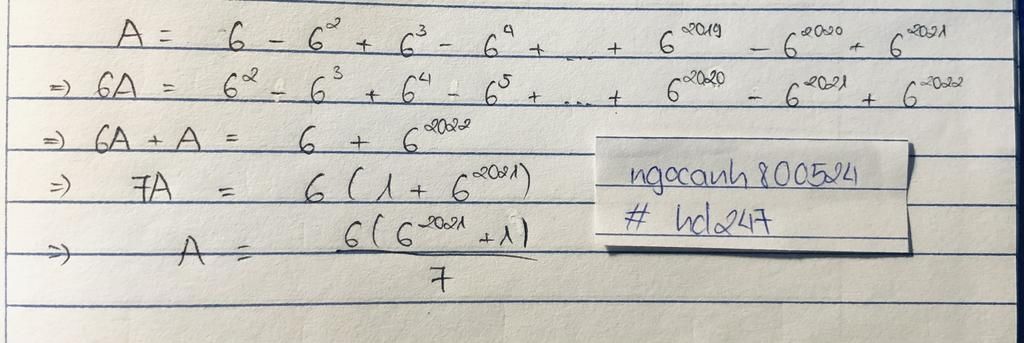 A = 6 - 6² + 6³ - 6⁴ + ... + 6²⁰¹⁹ - 6²⁰²⁰ + 6²⁰²¹
=) 6A = 6² - 6³ + 6⁴ - 6⁵ + ... + 6²⁰²⁰ - 6²⁰²¹ + 6²⁰²²
=) 6A + A = 6 + 6²⁰²²
=) 7A = 6 ( 1 + 6²⁰²¹ )
=) A = 6 ( 6²⁰²¹ + 1 ) / 7
ngocanh800524
# hd247